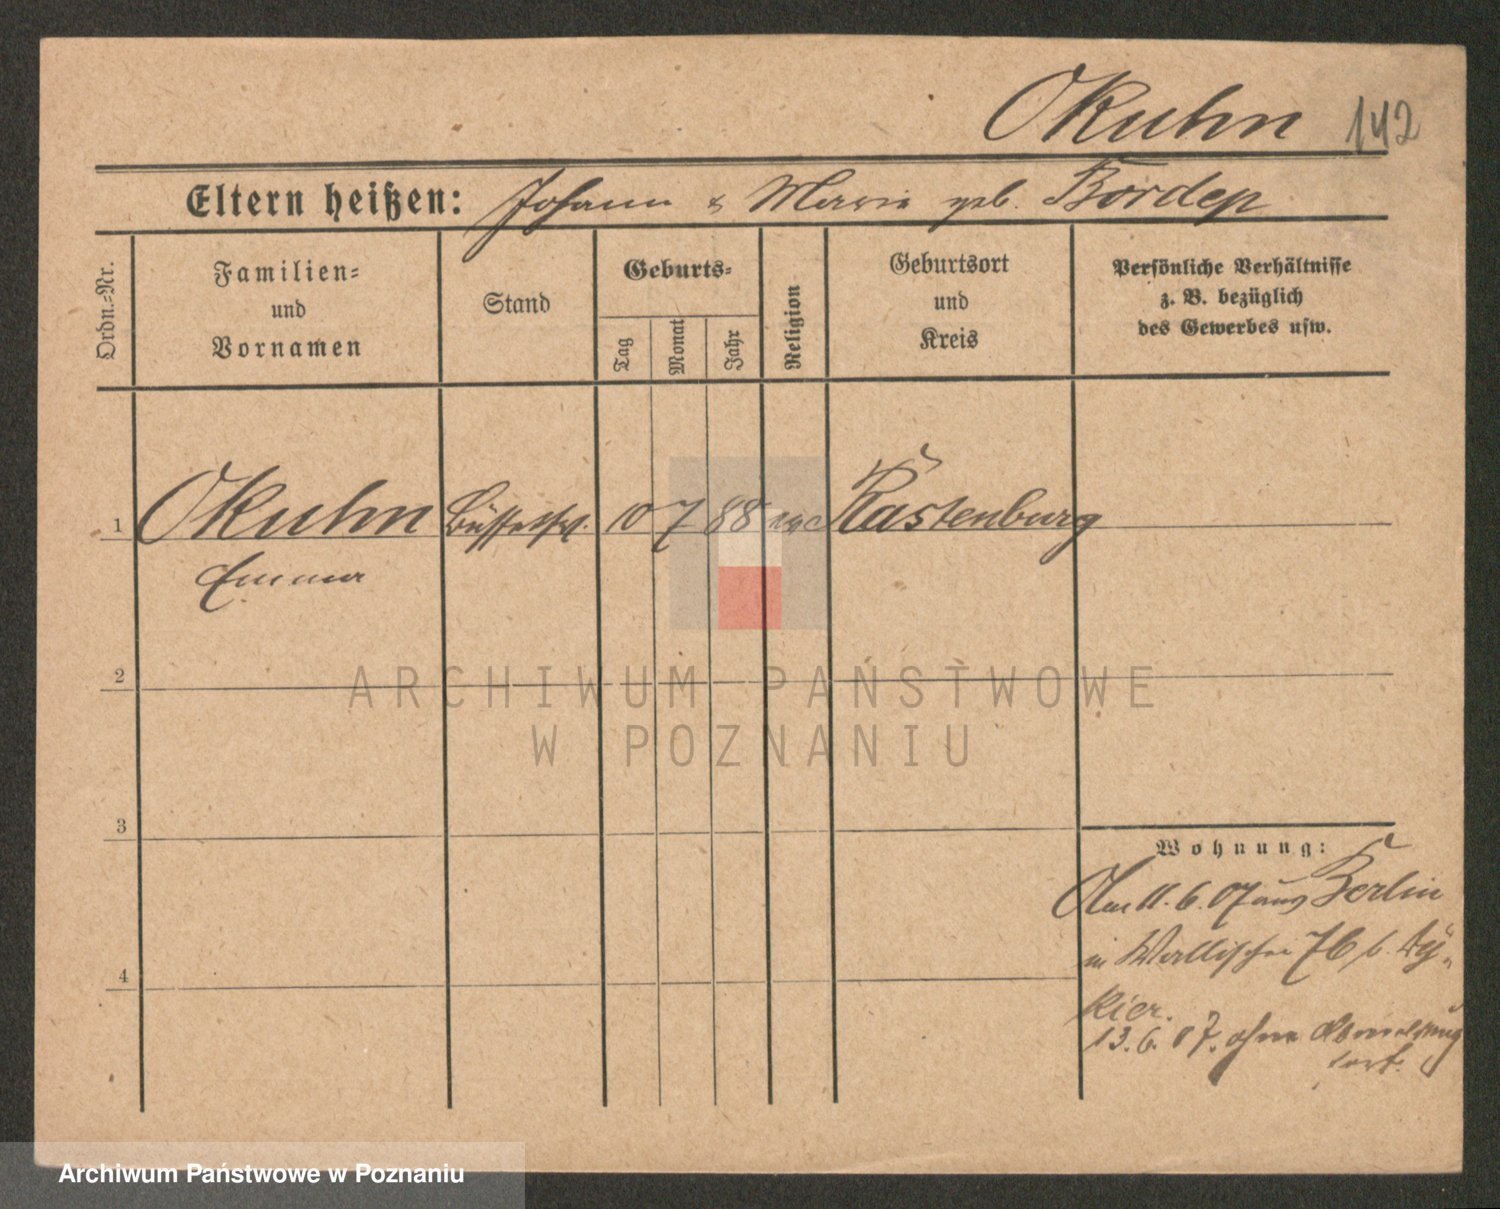 Okuhn 142
Eltern heißen: Johann & Marie geb. Bordep
Ordn.-Nr.
Familien-
und
Vornamen
Stand
Geburts-
Tag
Monat
Jahr
Religion
Geburtsort
und
Kreis
Persönliche Verhältnisse
z. B. bezüglich
des Gewerbes usw.
1 Okuhn 10 7 88 Rastenburg
Emma
2
3
4
Wohnung:
Am 11.6.07 aus Berlin
in Wallischei 76 b.
kier.
13.6.07. ohne Abmeldung
fort.
ARCHIWUM PAŃSTWOWE
W POZNANIU
Archiwum Państwowe w Poznaniu